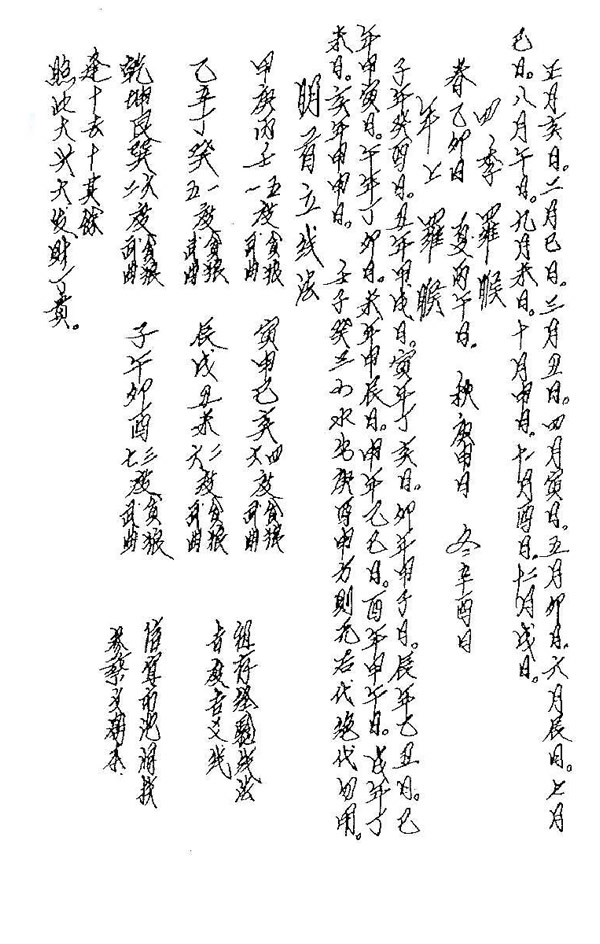 正月亥日。二月巳日。三月丑日。四月寅日。五月卯日。六月辰日。七月
巳日。八月午日。九月未日。十月申日。十一月酉日。十二月戌日。
四季羅睺
春乙卯日 夏丙午日。 秋庚申日 冬辛酉日
年上羅睺
子年癸酉日。丑年甲戌日。寅年丁亥日。卯年甲子日。辰年乙丑日。巳
年甲寅日。午年丁卯日。未年甲辰日。申年乙巳日。酉年甲午日。戌年丁
未日。亥年甲申日。 壬子癸三山水出庚酉申方則 后代绝代
明首立线法
甲庚丙壬一五度貪狼武曲 寅申巳亥四六度貪狼武曲
乙辛丁癸一五度貪狼武曲 辰戌丑未二六度貪狼武曲
乾坤艮巽二六度貪狼武曲 子午卯酉三七度貪狼武曲
逢十去十其餘
照此大兴大发財丁貴。